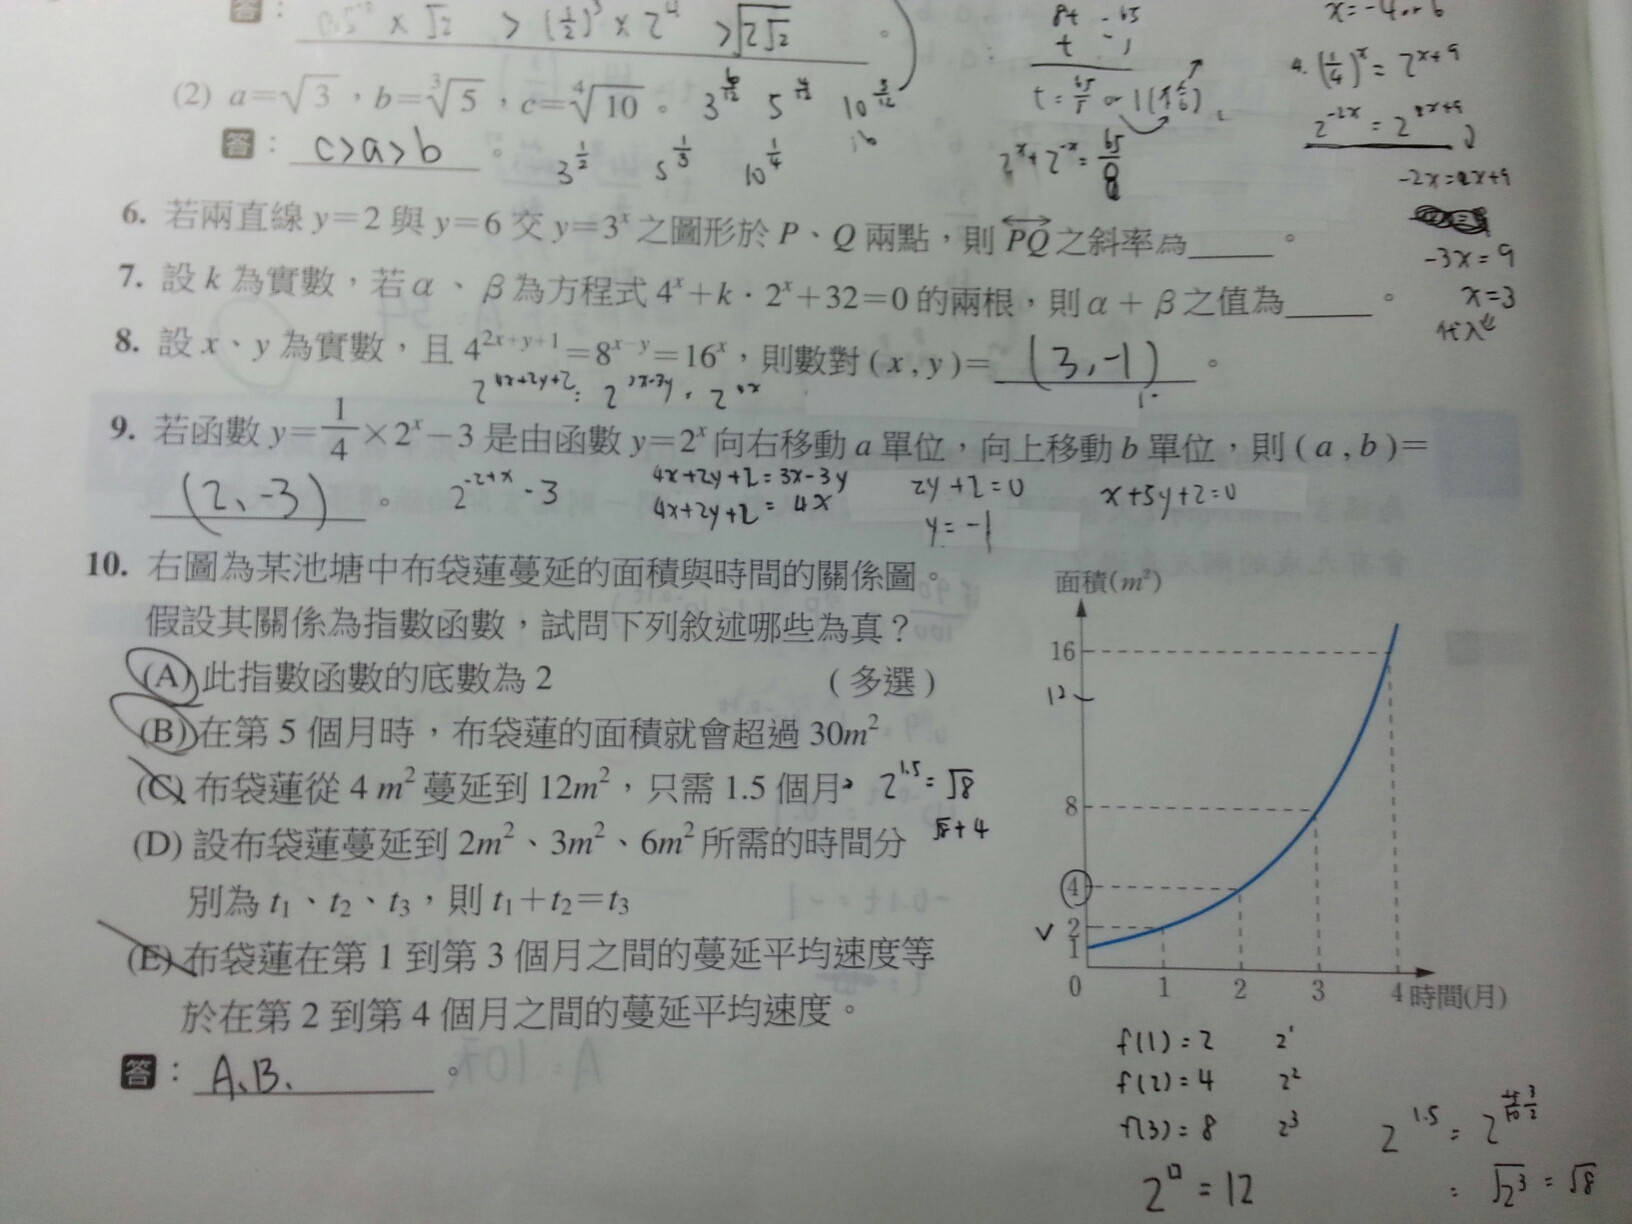 答：0.5⁻² × √2 > (1/2)³ × 2⁴ > √2√2 。
8t -65
t -1
t = 65/8 or
2ˣ + 2⁻ˣ = 65/8
x = -4 or 6
4. (1/4)ˣ = 2ˣ⁺⁹
-3x = 9
x = 3
代入
(2) a=√3，b=³√5，c=⁴√10。
答：c>a>b 。 3^(1/2) 5^(1/3) 10^(1/4)
6. 若兩直線 y=2 與 y=6 交 y=3ˣ 之圖形於 P、Q 兩點，則 PQ 之斜率為____。
7. 設 k 為實數，若 α、β 為方程式 4ˣ+k·2ˣ+32=0 的兩根，則 α+β 之值為____。
8. 設 x、y 為實數，且 4²ˣ⁺ʸ⁺¹=8ˣ⁻ʸ=16ˣ，則數對 (x,y)= (3,-1) 。
2⁴ˣ⁺²ʸ⁺² = 2³ˣ⁻³ʸ = 2⁴ˣ
9. 若函數 y=1/4×2ˣ-3 是由函數 y=2ˣ 向右移動 a 單位，向上移動 b 單位，則 (a,b)=
(2、-3) 。 2⁻²⁺ˣ - 3
4x+2y+2 = 3x-3y
4x+2y+2 = 4x
2y+2=0
y = -1
x+5y+2=0
10. 右圖為某池塘中布袋蓮蔓延的面積與時間的關係圖。
假設其關係為指數函數，試問下列敘述哪些為真？
(A) 此指數函數的底數為 2 (多選)
(B) 在第 5 個月時，布袋蓮的面積就會超過 30m²
(C) 布袋蓮從 4 m² 蔓延到 12m²，只需 1.5 個月 2^1.5 = √8
√8+4
(D) 設布袋蓮蔓延到 2m²、3m²、6m² 所需的時間分
別為 t₁、t₂、t₃，則 t₁+t₂=t₃
(E) 布袋蓮在第 1 到第 3 個月之間的蔓延平均速度等
於在第 2 到第 4 個月之間的蔓延平均速度。
答：A、B、 。
面積(m²)
16
12
8
4
2
1
0 1 2 3 4 時間(月)
f(1) = 2 2¹
f(2) = 4 2²
f(3) = 8 2³
2^□ = 12
2^1.5 = 2^(3/2)
= √2³ = √8